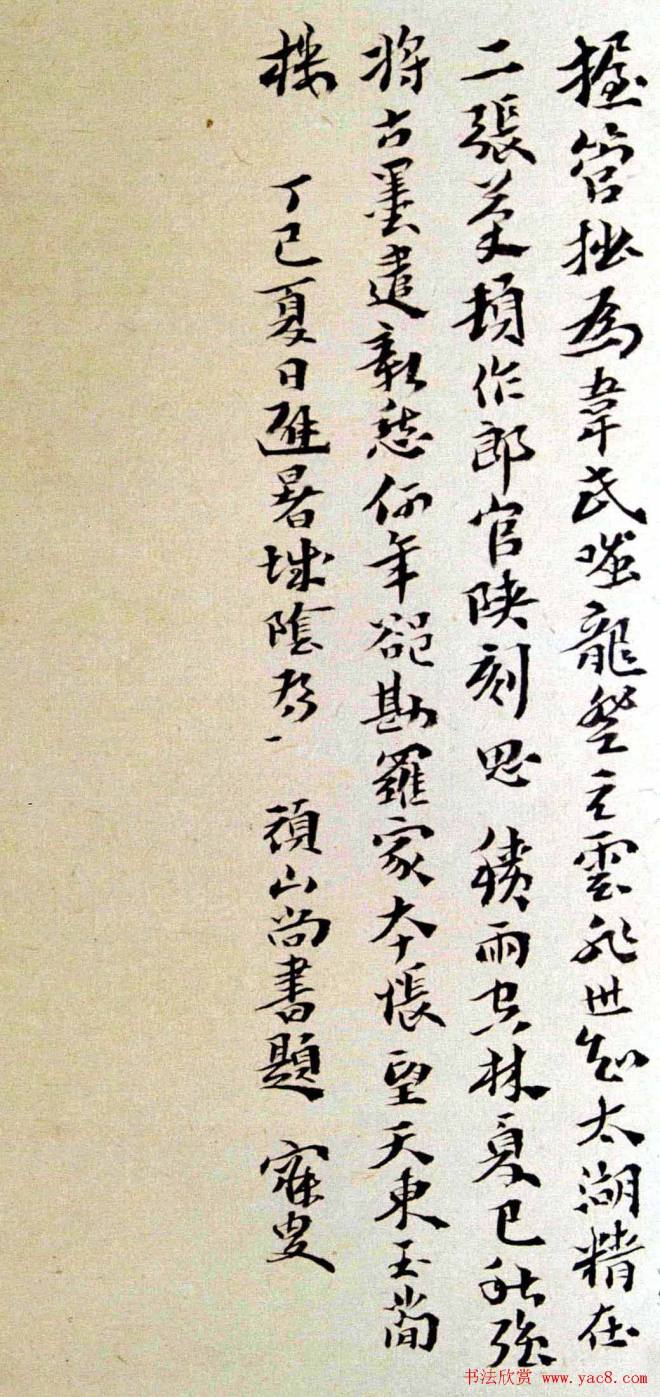 握管拙為韋氏嗤龍跧之雲非世知太湖精在
二張英頓作郎官陝刻思 積雨空林夏已秋強
將古墨遣新愁何年卻勘羅家本悵望天東玉蕳
樓 丁巳夏日避暑城陰為一 頑山尚書題 寐叟
书法欣赏 www.yac8.com